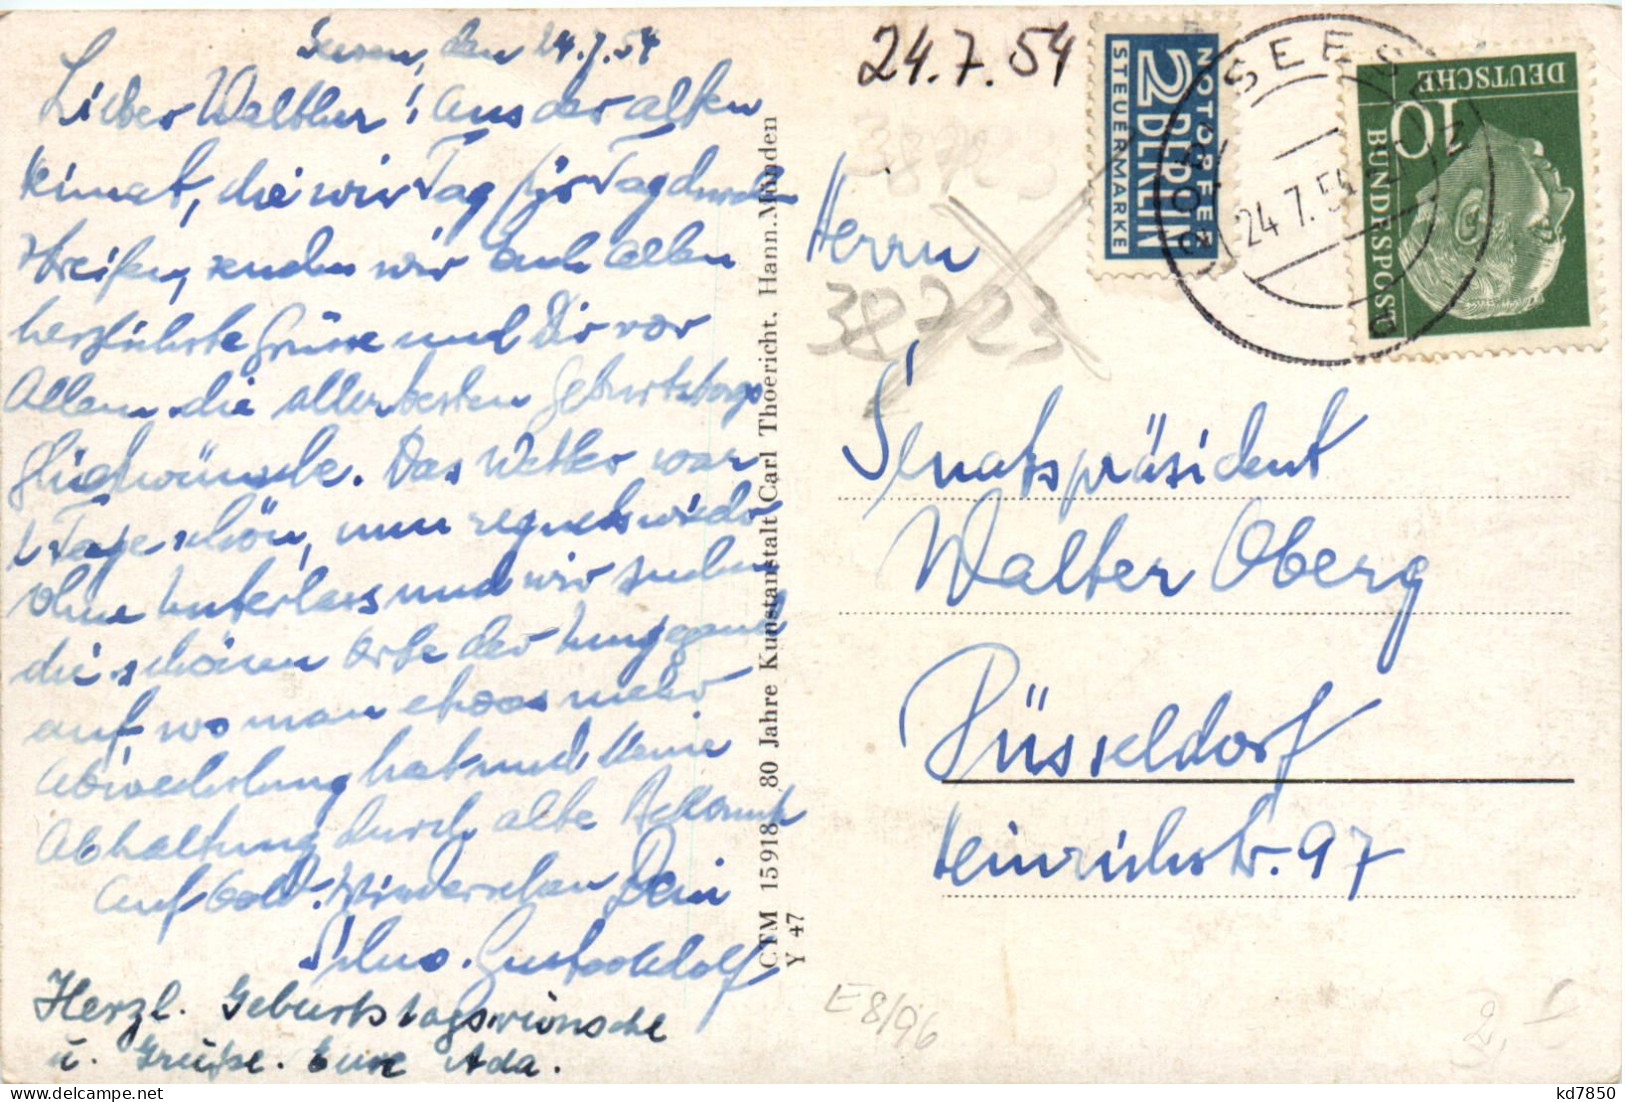 Seesen, den 24.7.54
Lieber Walther! Aus der alten
Heimat, die wir Tag für Tag durch-
streifen, senden wir Euch allen
herzlichste Grüsse und Dir vor
Allem die allerbesten Geburtstags
glückwünsche. Das Wetter war
2 Tage schön, nun regnets wieder
ohne Unterlass und wir suchen
die schönen Orte der Umgegend
auf, wo man etwas mehr
Abwechslung hat und keine
Abhaltung durch alte Bekannte
Auf bald. Wiedersehen Dein
Gustav Adolf
Herzl. Geburtstagswünsche
u. Grüße. Eure Ada.
CTM 15918 80 Jahre Kunstanstalt Carl Thoericht, Hann.Münden
Y 47
24.7.54
NOTOPFER
2 BERLIN
STEUERMARKE
SEESEN
24.7.54
DEUTSCHE
10
BUNDESPOST
38723
38723
Herrn
Senatspräsident
Walter Oberg
Düsseldorf
Heinrichstr. 97
E8/96
2,
kd7850